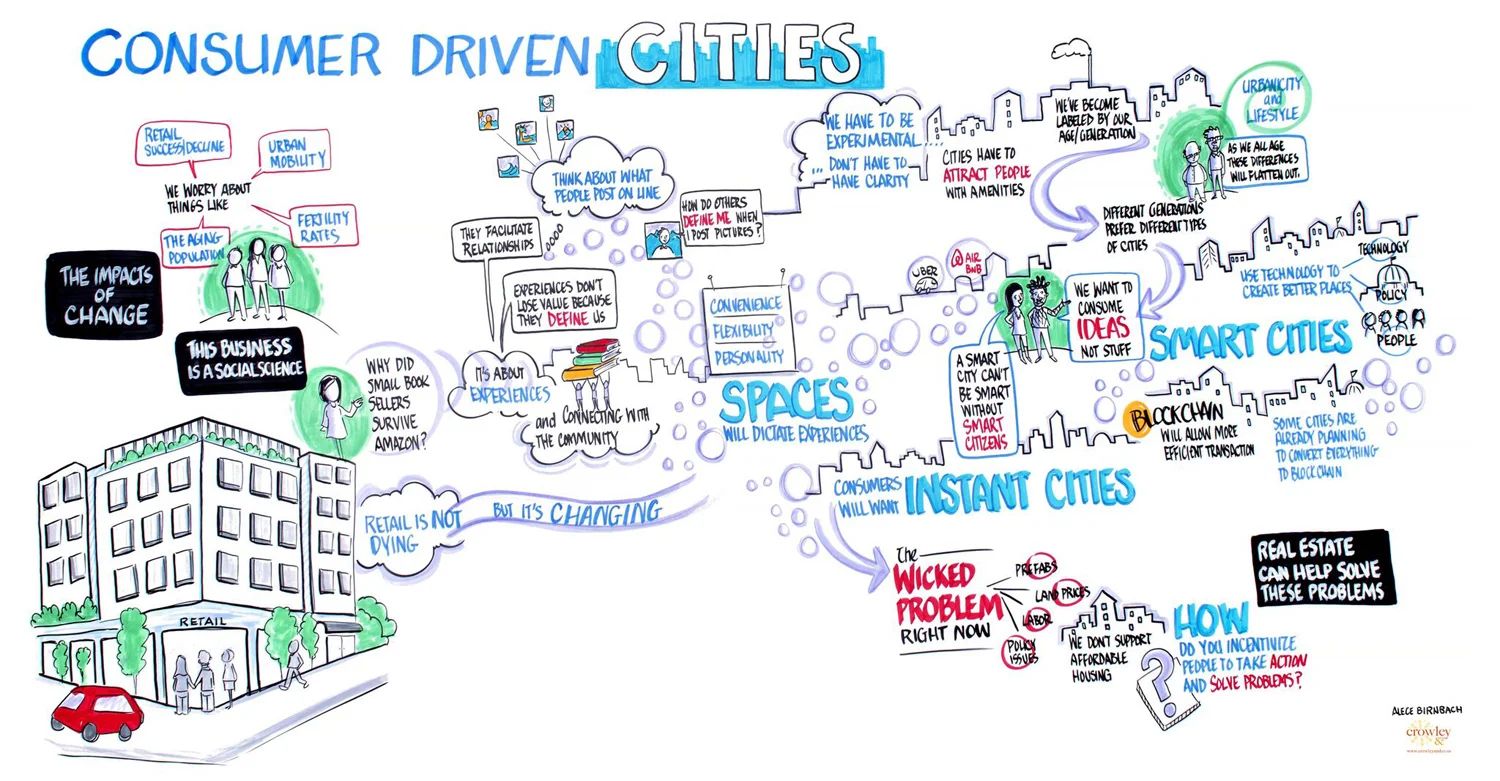 CONSUMER DRIVEN CITIES
RETAIL
SUCCESS/DECLINE
URBAN
MOBILITY
WE WORRY ABOUT
THINGS LIKE
THE AGING
POPULATION
FERTILITY
RATES
THE IMPACTS
OF
CHANGE
THIS BUSINESS
IS A SOCIAL SCIENCE
WHY DID
SMALL BOOK
SELLERS
SURVIVE
AMAZON?
RETAIL IS NOT
DYING
BUT IT'S CHANGING
RETAIL
THINK ABOUT WHAT
PEOPLE POST ON LINE
THEY FACILITATE
RELATIONSHIPS
HOW DO OTHERS
DEFINE ME WHEN
I POST PICTURES?
EXPERIENCES DON'T
LOSE VALUE BECAUSE
THEY DEFINE US
IT'S ABOUT
EXPERIENCES
and CONNECTING WITH
THE COMMUNITY
CONVENIENCE
FLEXIBILITY
PERSONALITY
SPACES
WILL DICTATE EXPERIENCES
WE HAVE TO BE
EXPERIMENTAL....
... DON'T HAVE TO
HAVE CLARITY
CITIES HAVE TO
ATTRACT PEOPLE
WITH AMENITIES
WE'VE BECOME
LABELED BY OUR
AGE/GENERATION
URBANICITY
and
LIFESTYLE
AS WE ALL AGE
THESE DIFFERENCES
WILL FLATTEN OUT.
DIFFERENT GENERATIONS
PREFER DIFFERENT TYPES
OF CITIES
UBER
AIR
BNB
WE WANT TO
CONSUME
IDEAS
NOT STUFF
A SMART
CITY CAN'T
BE SMART
WITHOUT
SMART
CITIZENS
USE TECHNOLOGY TO
CREATE BETTER PLACES
TECHNOLOGY
POLICY
PEOPLE
SMART CITIES
BLOCKCHAIN
WILL ALLOW MORE
EFFICIENT TRANSACTION
SOME CITIES ARE
ALREADY PLANNING
TO CONVERT EVERYTHING
TO BLOCKCHAIN
CONSUMERS
WILL WANT
INSTANT CITIES
The
WICKED
PROBLEM
RIGHT NOW
PREFABS
LAND PRICES
LABOR
POLICY
ISSUES
WE DON'T SUPPORT
AFFORDABLE
HOUSING
?
HOW
DO YOU INCENTIVIZE
PEOPLE TO TAKE ACTION
AND SOLVE PROBLEMS?
REAL ESTATE
CAN HELP SOLVE
THESE PROBLEMS
ALECE BIRNBACH
crowley
&